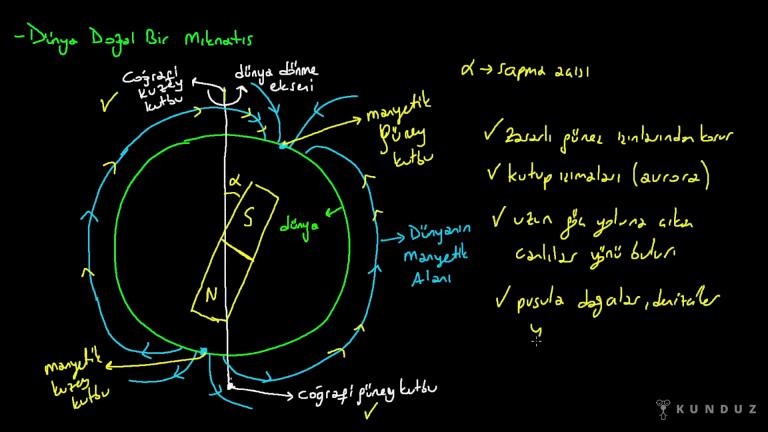 - Dünya Doğal Bir Mıknatıs
coğrafi
kuzey
kutbu
dünya dönme
ekseni
manyetik
güney
kutbu
α
S
N
dünya
Dünyanın
manyetik
Alanı
manyetik
kuzey
kutbu
coğrafi güney kutbu
α → sapma açısı
✓ zararlı güneş ışınlarından korur
✓ kutup ışımaları (aurora)
✓ uzun göç yoluna çıkan
canlılar yönü bulur
✓ pusula dağcılar, denizciler
y
KUNDUZ